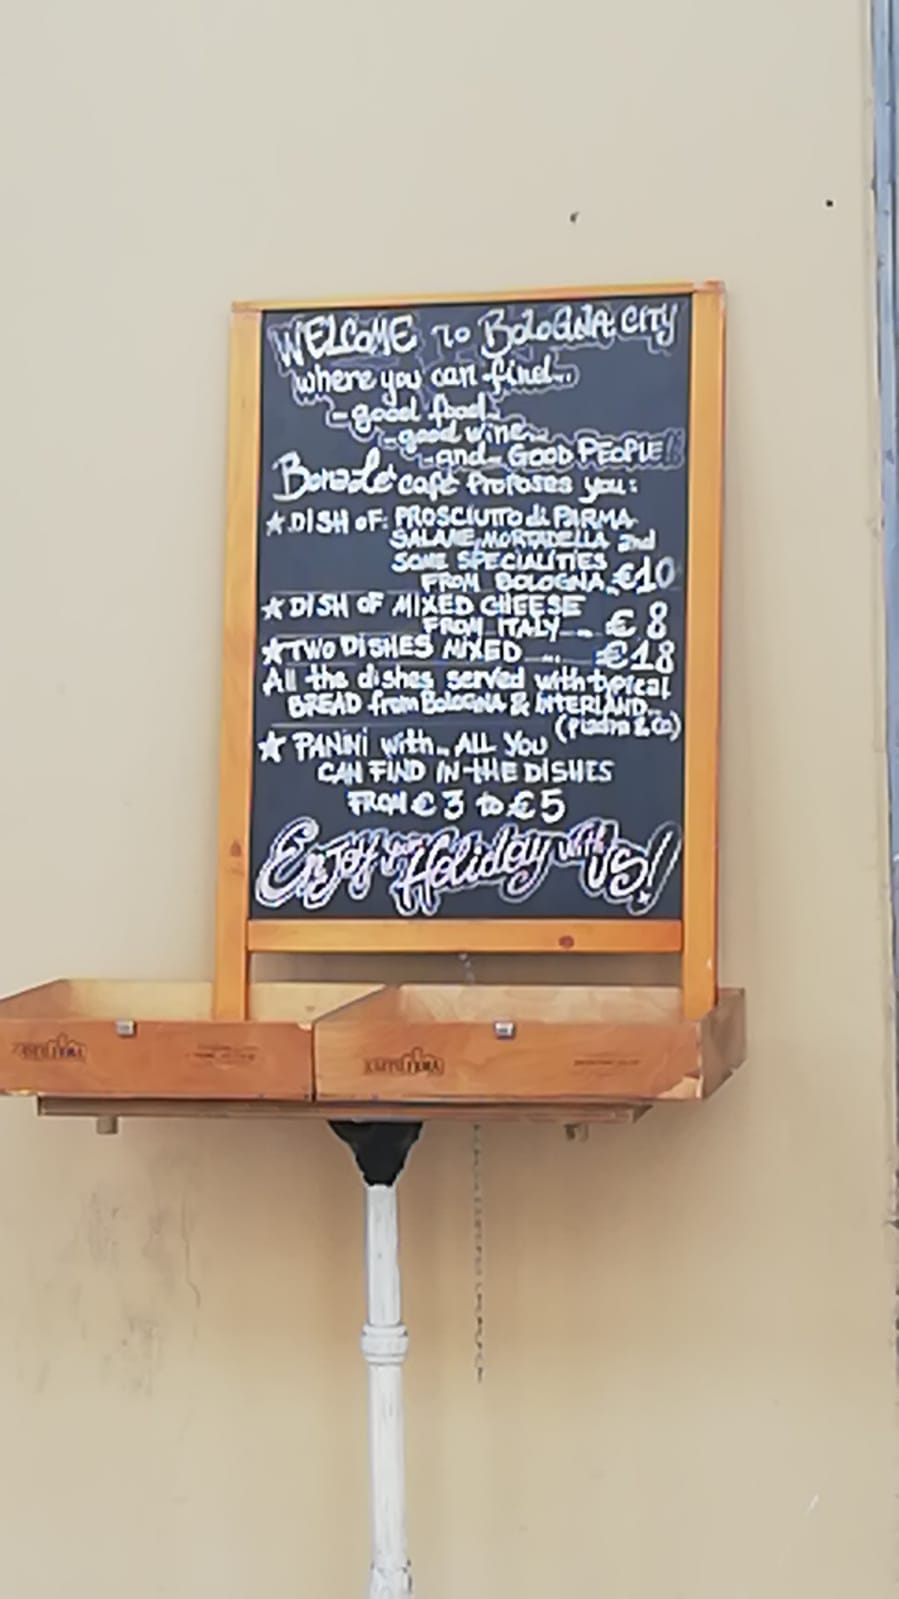 WELCOME TO BOLOGNA CITY
where you can find...
- good food..
- good wine...
- and.. GOOD PEOPLE!!
café Proposes you:
★ DISH OF: PROSCIUTTO di PARMA
SALAME, MORTADELLA and
SOME SPECIALITIES
FROM BOLOGNA.. €10
★ DISH OF MIXED CHEESE
FROM ITALY... € 8
★ TWO DISHES MIXED .... €18
All the dishes served with typical
BREAD from BOLOGNA & INTERLAND..
& Co)
★ PANINI with.. ALL YOU
CAN FIND IN THE DISHES
FROM € 3 to € 5
Enjoy your Holiday with US!